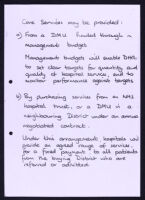 Core Services may be provided:
a) From a DMU funded through a
management budget.
Management budgets will enable DHA's
to set clear targets for quantity and
quality of hospital service, and to
monitor performance against targets.
b) By purchasing services from an NHS
hospital trust, or a DMU in a
neighbouring District under an annual
negotiated contract.
Under this arrangement hospitals will
provide an agreed range of service,
for a fixed payment to all patients
from the buying District who are
referred or admitted.